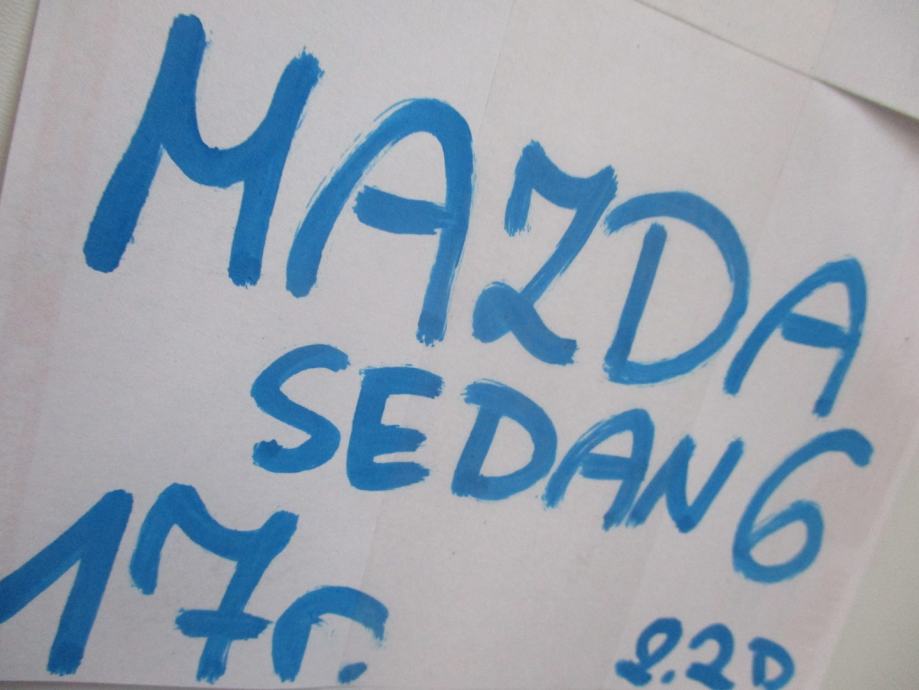 MAZDA
SEDAN 6
17r.
2.2D